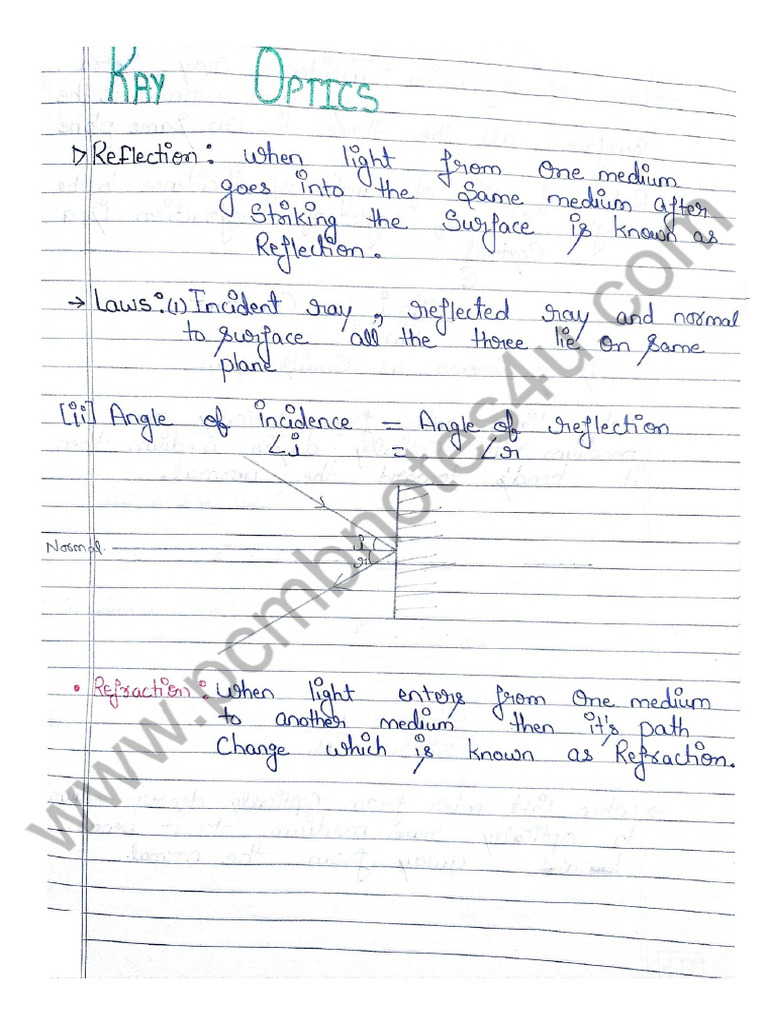 RAY OPTICS
▷ Reflection: When light from one medium
goes into the same medium after
striking the surface is known as
Reflection.
→ Laws: (i) Incident ray, reflected ray and normal
to surface all the three lie on same
plane
[ii] Angle of incidence = Angle of reflection
∠i = ∠r
i
Normal
r
• Refraction: When light enters from one medium
to another medium then it's path
Change which is known as Refraction.
www.pcmbnotes4u.com